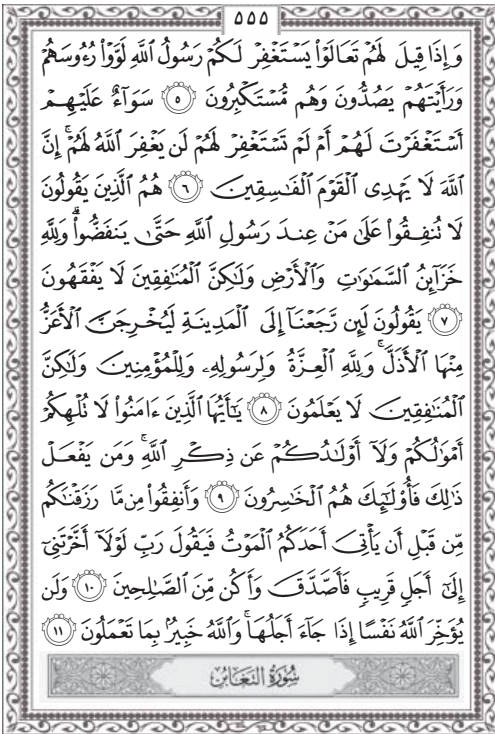 ٥٥٥
وَإِذَا قِيلَ لَهُمْ تَعَالَوْا۟ يَسْتَغْفِرْ لَكُمْ رَسُولُ ٱللَّهِ لَوَّوْا۟ رُءُوسَهُمْ
وَرَأَيْتَهُمْ يَصُدُّونَ وَهُم مُّسْتَكْبِرُونَ ٥ سَوَآءٌ عَلَيْهِمْ
أَسْتَغْفَرْتَ لَهُمْ أَمْ لَمْ تَسْتَغْفِرْ لَهُمْ لَن يَغْفِرَ ٱللَّهُ لَهُمْ ۚ إِنَّ
ٱللَّهَ لَا يَهْدِى ٱلْقَوْمَ ٱلْفَٰسِقِينَ ٦ هُمُ ٱلَّذِينَ يَقُولُونَ
لَا تُنفِقُوا۟ عَلَىٰ مَنْ عِندَ رَسُولِ ٱللَّهِ حَتَّىٰ يَنفَضُّوا۟ ۗ وَلِلَّهِ
خَزَآئِنُ ٱلسَّمَٰوَٰتِ وَٱلْأَرْضِ وَلَٰكِنَّ ٱلْمُنَٰفِقِينَ لَا يَفْقَهُونَ
٧ يَقُولُونَ لَئِن رَّجَعْنَآ إِلَى ٱلْمَدِينَةِ لَيُخْرِجَنَّ ٱلْأَعَزُّ
مِنْهَا ٱلْأَذَلَّ ۚ وَلِلَّهِ ٱلْعِزَّةُ وَلِرَسُولِهِۦ وَلِلْمُؤْمِنِينَ وَلَٰكِنَّ
ٱلْمُنَٰفِقِينَ لَا يَعْلَمُونَ ٨ يَٰٓأَيُّهَا ٱلَّذِينَ ءَامَنُوا۟ لَا تُلْهِكُمْ
أَمْوَٰلُكُمْ وَلَآ أَوْلَٰدُكُمْ عَن ذِكْرِ ٱللَّهِ ۚ وَمَن يَفْعَلْ
ذَٰلِكَ فَأُو۟لَٰٓئِكَ هُمُ ٱلْخَٰسِرُونَ ٩ وَأَنفِقُوا۟ مِن مَّا رَزَقْنَٰكُم
مِّن قَبْلِ أَن يَأْتِىَ أَحَدَكُمُ ٱلْمَوْتُ فَيَقُولَ رَبِّ لَوْلَآ أَخَّرْتَنِىٓ
إِلَىٰٓ أَجَلٍ قَرِيبٍ فَأَصَّدَّقَ وَأَكُن مِّنَ ٱلصَّٰلِحِينَ ١٠ وَلَن
يُؤَخِّرَ ٱللَّهُ نَفْسًا إِذَا جَآءَ أَجَلُهَا ۚ وَٱللَّهُ خَبِيرٌۢ بِمَا تَعْمَلُونَ ١١
سُورَةُ التَّغَابُنِ